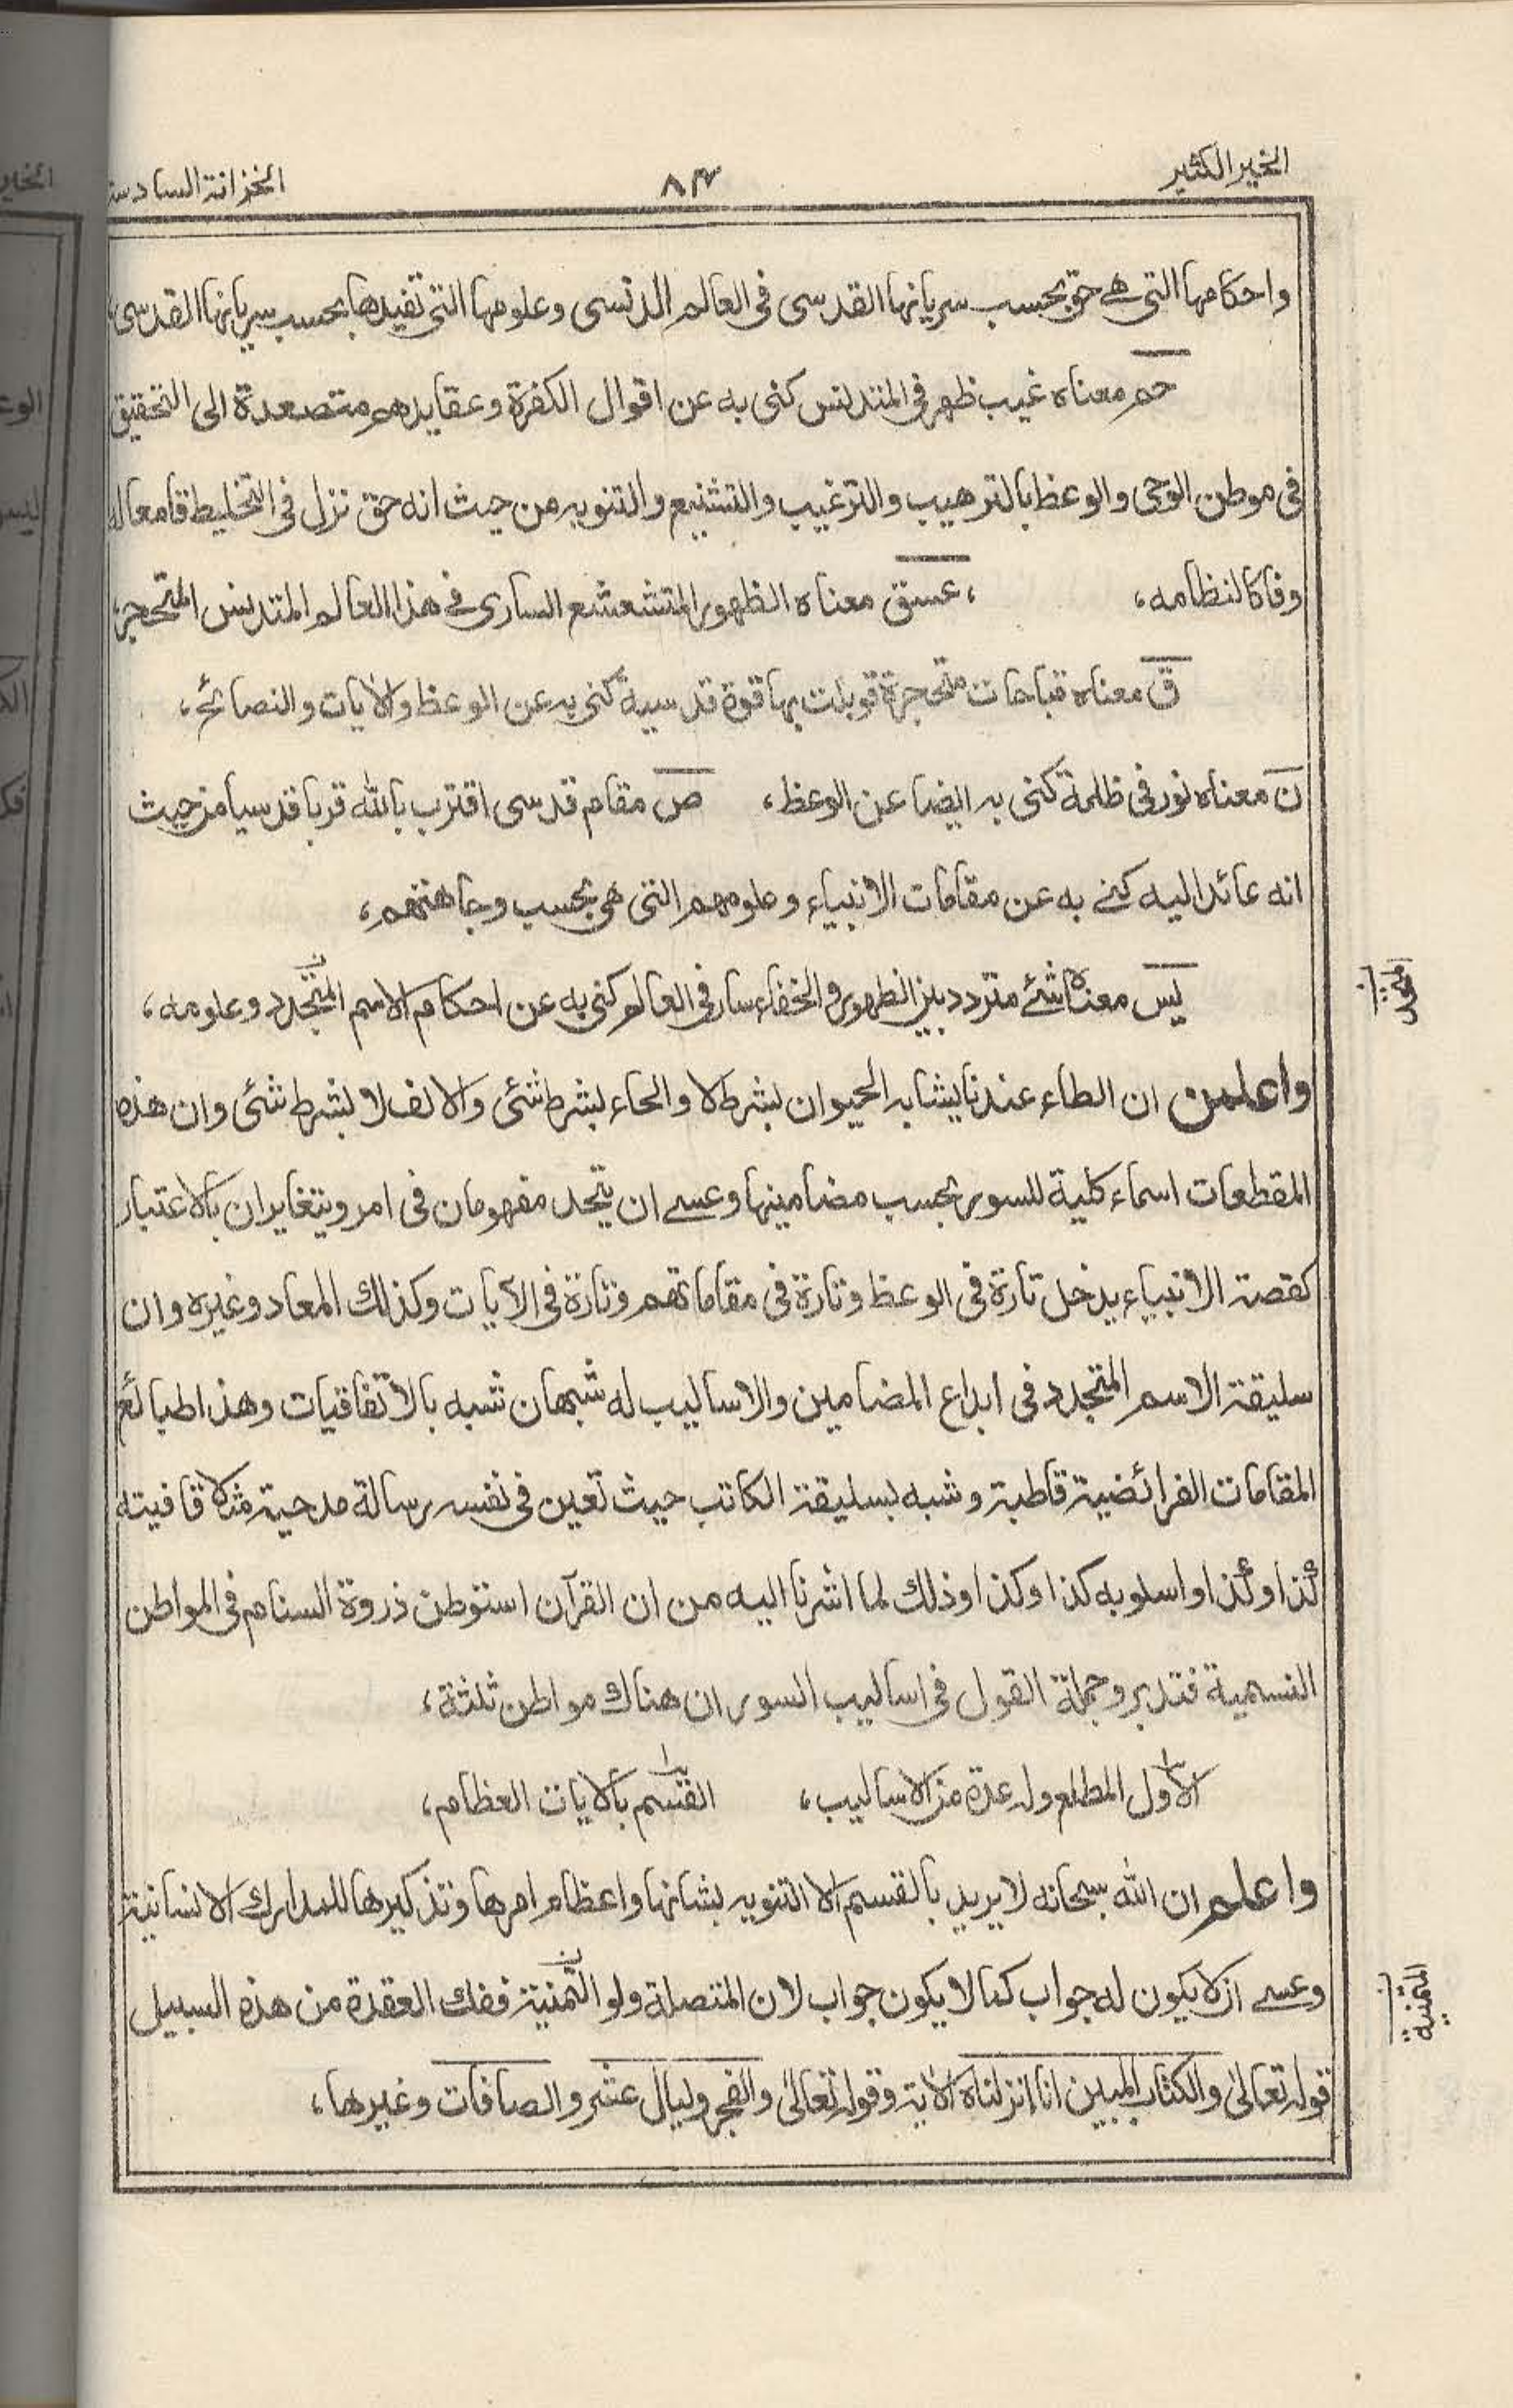 الخير الكثير
٨٤
الخزانة السادس
واحكامها التى هے حق بحسب سريانها القدسى فى العالم الدنسى وعلومها التى تفيدها بحسب سريانها القدسى
حم معناه غيب ظهر فى المتدنس كنى به عن اقوال الكفرة وعقايدهم متصعدة الى التحقيق
فى موطن الوحى والوعظ بالترهيب والترغيب والتشنيع والتنويه من حيث انه حق نزل فى التخليط قامعاله
وفاكالنظامه، ، عسق معناه الظهور المتشعشع السارى فے هذا العالم المتدنس المتحجر،
ق معناه قباحات متحجرة قوبلت بها قوة قدسية كنى به عن الوعظ والآيات والنصائح،
ن معناه نور فى ظلمة كنى به ايضا عن الوعظ، ص مقام قدسى اقترب بالله قربا قدسيا من حيث
انه عائد اليه كنے به عن مقامات الانبياء وعلومهم التى هى بحسب وجاهتهم،
يس معناه شئے متردد بين الظهور والخفاء سار فى العالم كنى به عن احكام الاسم المتجدد وعلومه،
واعلمن ان الطاء عندنا يشابه الحيوان بشرط لا والحاء بشرط شئى والالف لا بشرط شئى وان هذه
المقطعات اسماء كلية للسور بحسب مضامينها وعسے ان يتحد مفهومان فى امر ويتغايران بالاعتبار
كقصة الانبياء يدخل تارة فى الوعظ وتارة فى مقاماتهم وتارة فى الآيات وكذلك المعاد وغيره وان
سليقة الاسم المتجدد فى ابداع المضامين والاساليب له شبهان شبه بالاتفاقيات وهذا طبائع
المقامات الفرائضية قاطبة وشبه بسليقة الكاتب حيث تعين فى نفسه رسالة مدحية مثلا قافيته
كذا وكذا واسلوبه كذا وكذا وذلك لما اشرنا اليه من ان القرآن استوطن ذروة السنام فى المواطن
النسمية فتدبر وجملة القول فى اساليب السور ان هناك مواطن ثلثة،
الاول المطلع وله عدة من الاساليب، القسم بالآيات العظام،
واعلم ان الله سبحانه لا يريد بالقسم الا التنويه بشانها واعظام امرها وتذكيرها للمدارك الانسانية
وعسے ان لا يكون له جواب كما لا يكون جواب لان المتصلة ولو التمنية ففك العقدة من هذه السبيل
التمنية
قوله تعالىٰ والكتاب المبين انا انزلناه الآية وقوله تعالىٰ والفجر وليال عشر والصافات وغيرها،